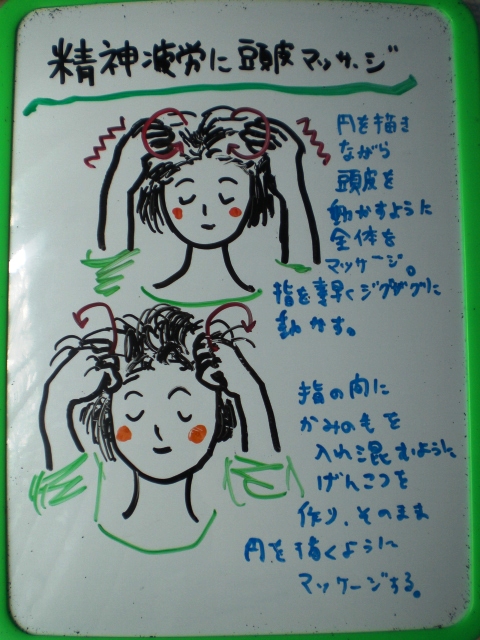 精神疲労に頭皮マッサージ
円を描き
ながら
頭皮を
動かすように
全体を
マッサージ。
指を素早くジグザグに
動かす。
指の間に
かみのもを
入れ混むように
げんこつを
作り、そのまま
円を描くように
マッサージする。